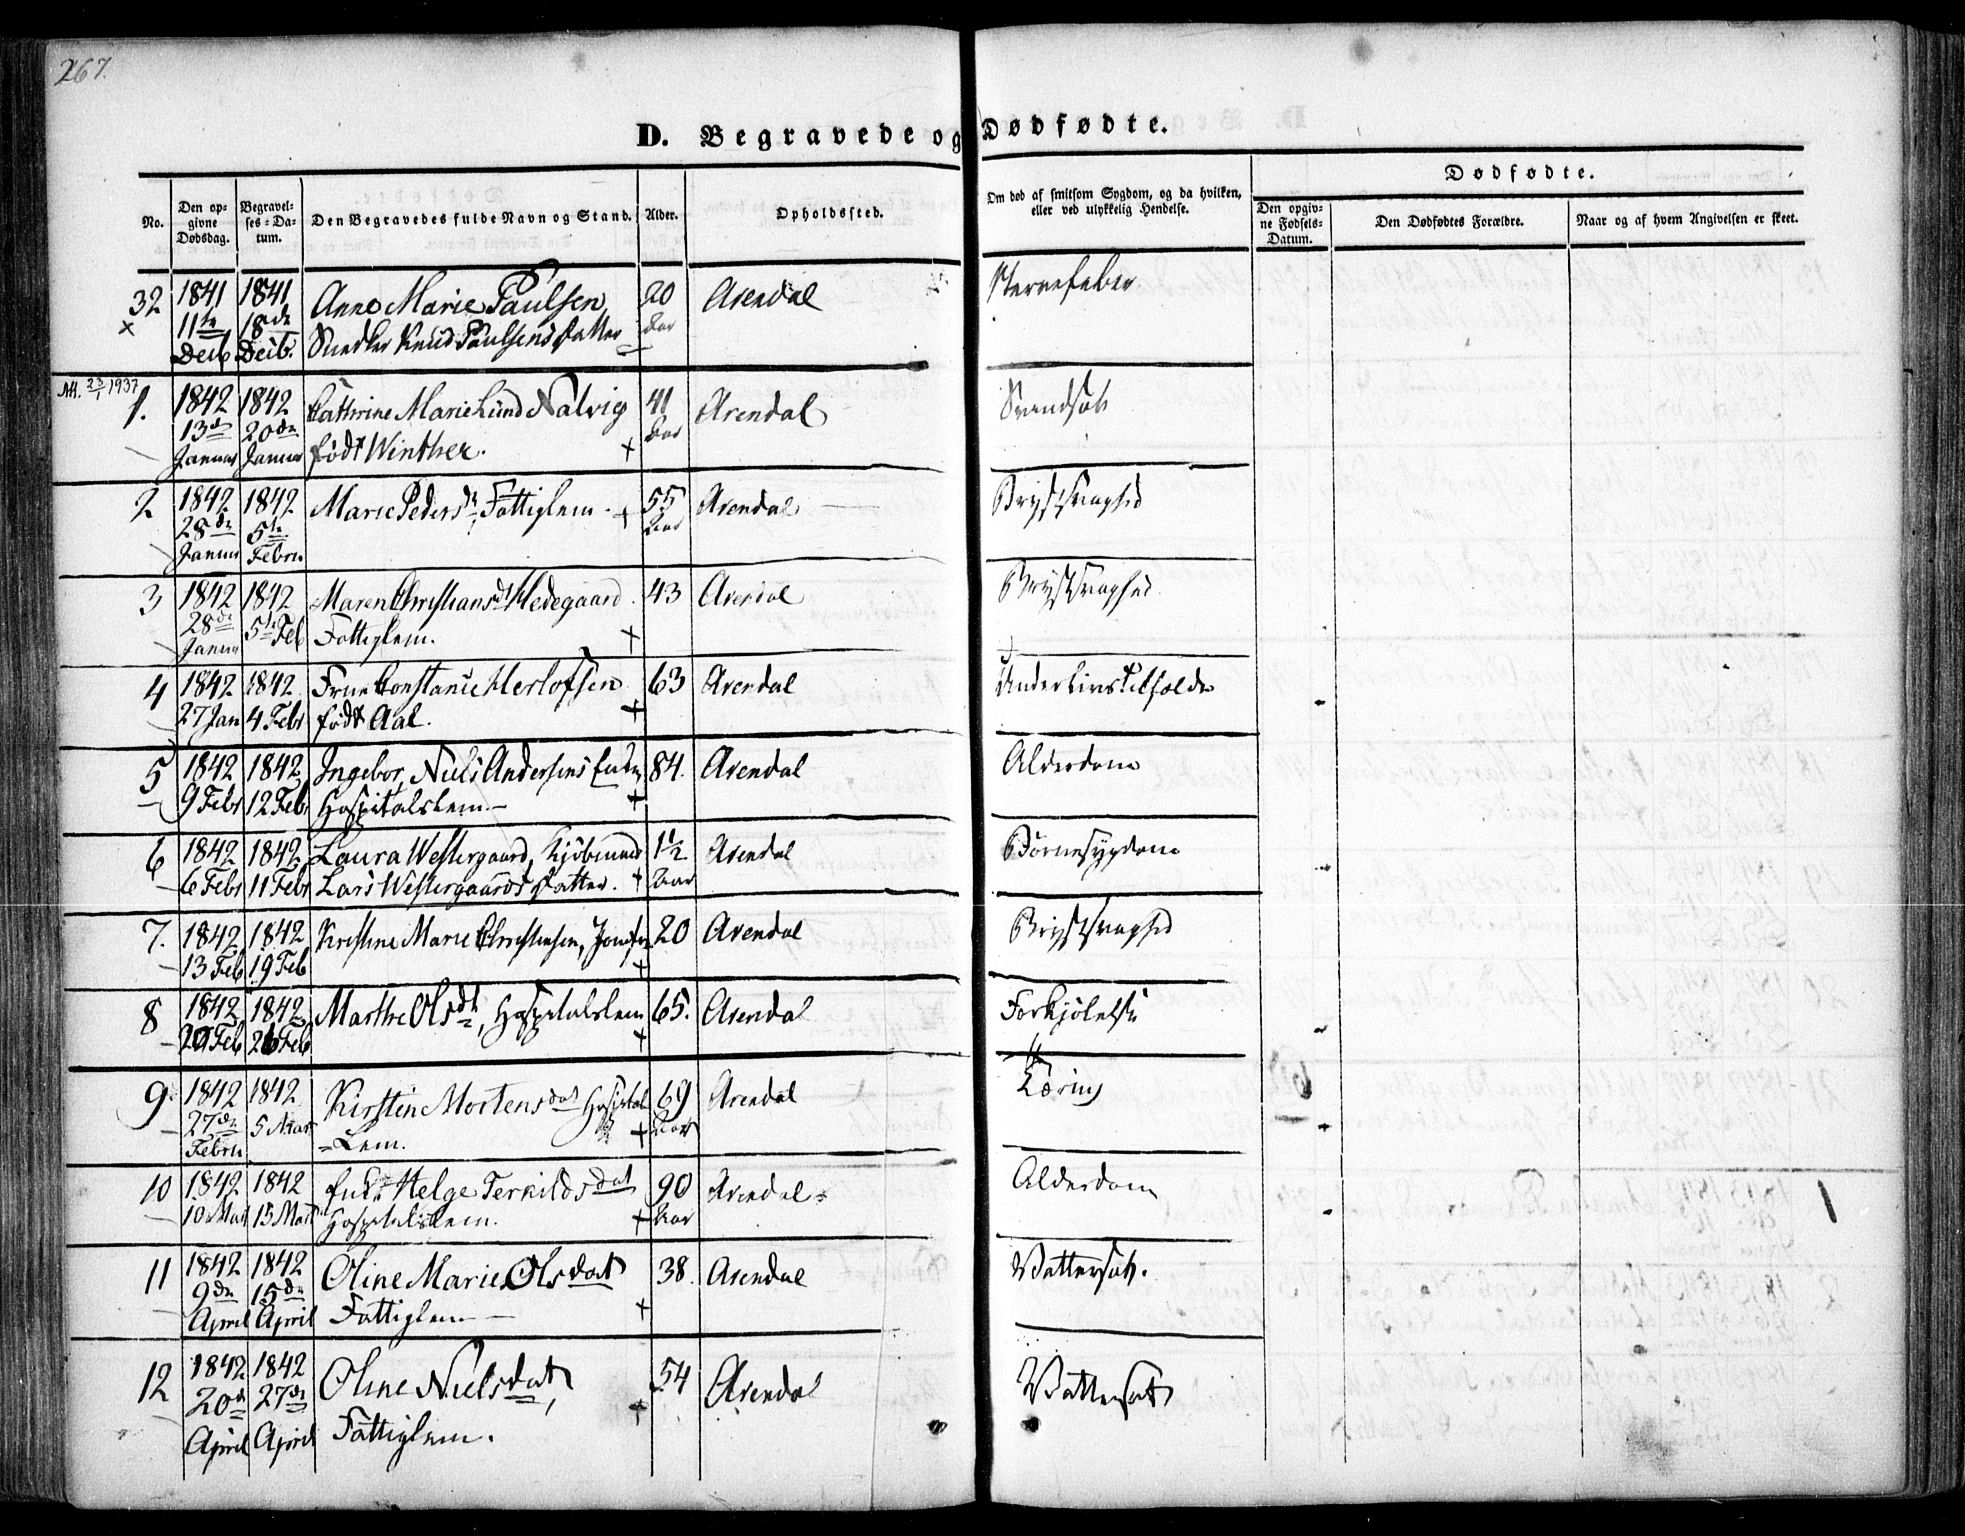 267.
D. Begravede og Dødfødte.
No.
Den opgivne Dødsdag.
Begravelses-Datum.
Den Begravedes fulde Navn og Stand.
Alder.
Opholdssted.
Om død af smitsom Sygdom, og da hvilken,
eller ved ulykkelig Hendelse.
Dødfødte.
Den opgivne Fødsels-Datum.
Den Dødfødtes Forældre.
Naar og af hvem Angivelsen er skeet.
32 1841 1841 Anne Marie Paulsen 20 Arendal Nervefeber
× 11te 18de Snedker Knud Paulsens Datter Aar
Decb Decb.
Att. 23/1 1937
1. 1842 1842 Cathrine Marie Lund Nalvig 41 Arendal
13de 20de født Winther. + Aar
Januar Januar
2 1842 1842 Marie Pedersdt, Fattiglem. + 55 Arendal Brystsvaghed
28de 5te Aar
Januar Febru
3 1842 1842 Maren Christiansdt Hedegaard 43 Arendal Brystsvaghed
28de 5te Feb Fattiglem. +
Januar
4 1842 1842 Frue Constance Herlofsen 63 Arendal Underlivstilfælde
27 Jan 4 Febr født Aal. +
5 1842 1842 Ingebor, Niels Andersens Enke 84. Arendal Alderdom
9 Febr 12 Feb Hospitalslem. +
6 1842 1842 Laura Westergaard, Kjøbmand 1½ Arendal Børnesygdom
6 Febr 11 Febr Lars Westergaards Datter. + Aar
7. 1842 1842 Kristine Marie Christensen, Jomfru 20 Arendal Brystsvaghed
13 Feb 19 Feb +
8 1842 1842 Marthe Olsdt, Hospitalslem 65. Arendal Forkjølelse
Feb 26 Feb +
9. 1842 1842 Kirstin Mortensdat Hospital 69 Arendal Tæring
27de 5 Mar =Lem. + Aar
Febru
10 1842 1842 Enke Helge Terkildsdat 90 Arendal Alderdom
10 Mar 15 Mart Hospitalslem. + Aar
11 1842 1842 Oline Marie Olsdat 38. Arendal Vattersot.
9de 15de Fattiglem +
April April
12 1842 1842 Oline Nielsdat, 54 Arendal Vattersot
20de 27de Fattiglem. +
April April
1